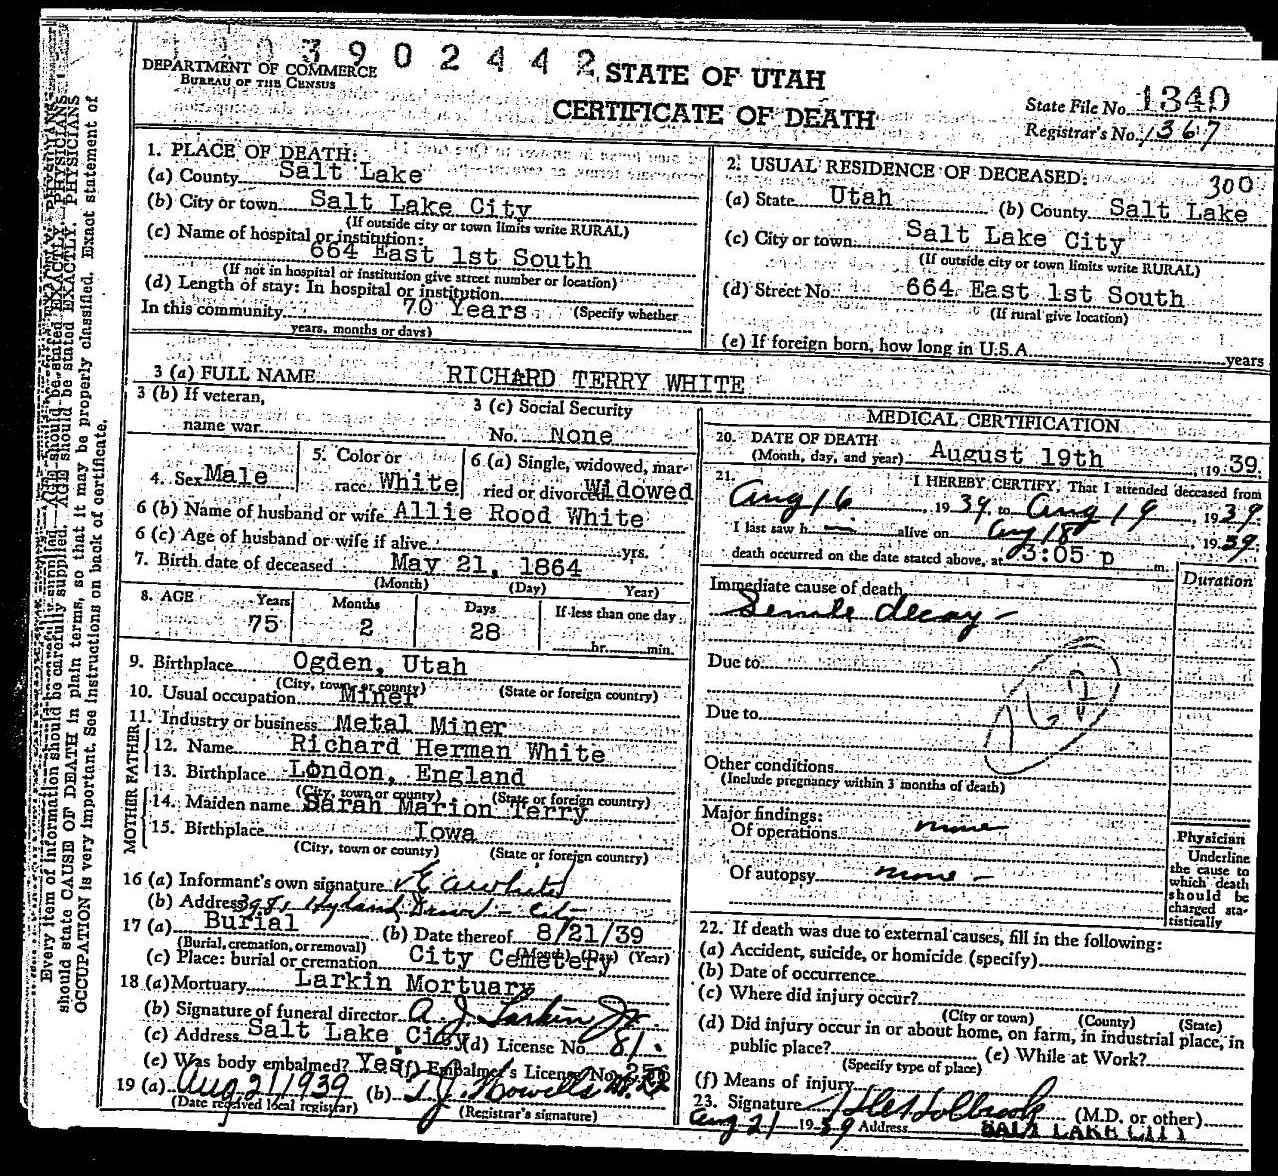 3902442
DEPARTMENT OF COMMERCE
BUREAU OF THE CENSUS
STATE OF UTAH
CERTIFICATE OF DEATH
State File No. 1340
Registrar's No. 1367
1. PLACE OF DEATH:
(a) County Salt Lake
(b) City or town Salt Lake City
(If outside city or town limits write RURAL)
(c) Name of hospital or institution:
664 East 1st South
(If not in hospital or institution give street number or location)
(d) Length of stay: In hospital or institution
In this community 70 Years (Specify whether
years, months or days)
2. USUAL RESIDENCE OF DECEASED:
300
(a) State Utah (b) County Salt Lake
(c) City or town Salt Lake City
(If outside city or town limits write RURAL)
(d) Street No. 664 East 1st South
(If rural give location)
(e) If foreign born, how long in U.S.A. years
3 (a) FULL NAME RICHARD TERRY WHITE
3 (b) If veteran,
name war
3 (c) Social Security
No. None
4. Sex Male
5. Color or
race White
6 (a) Single, widowed, mar-
ried or divorced Widowed
6 (b) Name of husband or wife Allie Rood White
6 (c) Age of husband or wife if alive yrs.
7. Birth date of deceased May 21, 1864
(Month) (Day) Year)
8. AGE Years 75
Months 2
Days 28
If less than one day
hr. min.
9. Birthplace Ogden, Utah
(City, town or county) (State or foreign country)
10. Usual occupation Miner
11. Industry or business Metal Miner
FATHER
12. Name Richard Herman White
13. Birthplace London, England
(City, town or county) (State or foreign country)
MOTHER
14. Maiden name Sarah Marion Terry
15. Birthplace Iowa
(City, town or county) (State or foreign country)
16 (a) Informant's own signature
(b) Address Hyland Drive - City
17 (a) Burial (b) Date thereof 8/21/39
(Burial, cremation, or removal) (Month) (Day) (Year)
(c) Place: burial or cremation City Cemetery
18 (a) Mortuary Larkin Mortuary
(b) Signature of funeral director A. J. Larkin Jr
(c) Address Salt Lake City (d) License No. 81.
(e) Was body embalmed? Yes (f) Embalmer's License No. 256
19 (a) Aug 21 1939 (b) T. J. Howells
(Date received local registrar) (Registrar's signature)
MEDICAL CERTIFICATION
20. DATE OF DEATH
(Month, day, and year) August 19th 19 39.
21. I HEREBY CERTIFY, That I attended deceased from
Aug 16, 19 39, to Aug 19, 19 39.
I last saw h — alive on Aug 18, 19 39.
death occurred on the date stated above, at 3:05 p m.
Duration
Immediate cause of death
Senile decay -
Due to
Due to
162
Other conditions
(Include pregnancy within 3 months of death)
Major findings:
Of operations none
Of autopsy none -
Physician
Underline
the cause to
which death
should be
charged sta-
tistically
22. If death was due to external causes, fill in the following:
(a) Accident, suicide, or homicide (specify)
(b) Date of occurrence
(c) Where did injury occur?
(City or town) (County) (State)
(d) Did injury occur in or about home, on farm, in industrial place, in
public place? (e) While at Work?
(Specify type of place)
(f) Means of injury
23. Signature Holbrook (M.D. or other)
Aug 21 19 39 Address SALT LAKE CITY
Every item of information should be carefully supplied. AGE should be stated EXACTLY. PHYSICIANS
should state CAUSE OF DEATH in plain terms, so that it may be properly classified. Exact statement of
OCCUPATION is very important. See instructions on back of certificate.